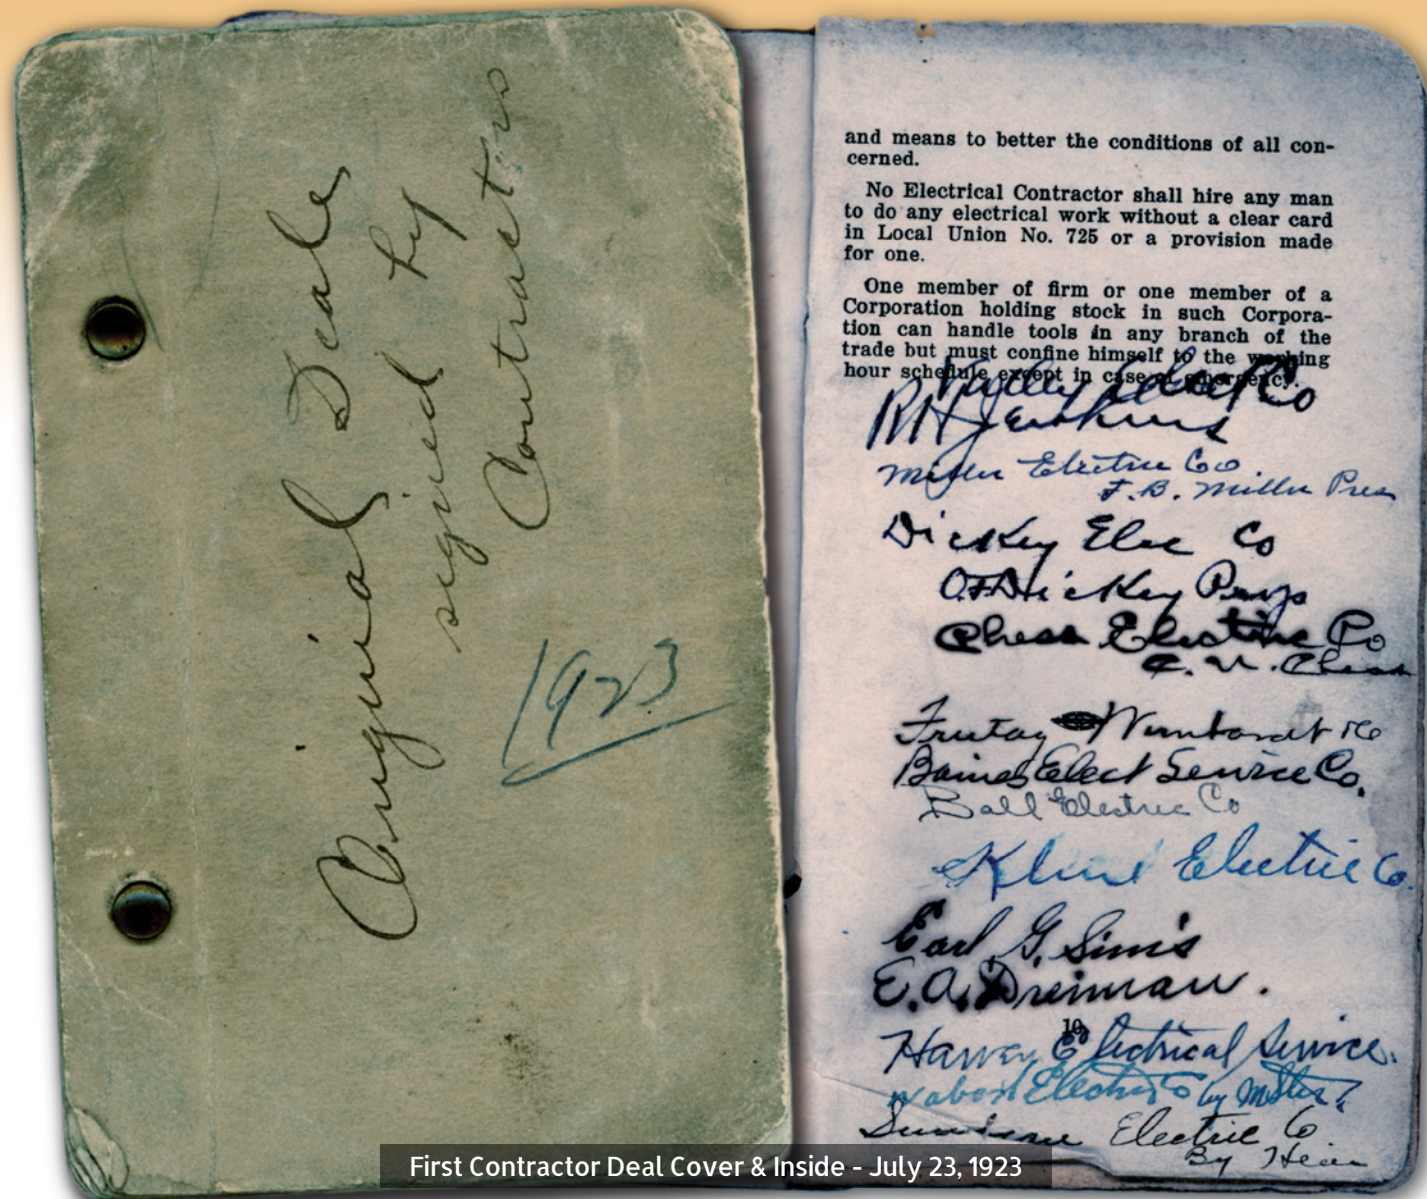 Original Deale
signed by
Contractors
1923
and means to better the conditions of all con-
cerned.
No Electrical Contractor shall hire any man
to do any electrical work without a clear card
in Local Union No. 725 or a provision made
for one.
One member of firm or one member of a
Corporation holding stock in such Corpora-
tion can handle tools in any branch of the
trade but must confine himself to the working
hour schedule except in case of emergency.
Co
R H Jenkins
Miller Electric Co.
F. B. Miller Pres
Dickey Elec Co
Dickey
Chess Electric Co
C. N. Chess
Freitag
Baines Elect Service Co.
Ball Electric Co
Electric Co.
Earl G. Sims
E. A. Dreiman.
10
Electrical Service.
Wabash Electric Co by
Electric Co.
By
First Contractor Deal Cover & Inside - July 23, 1923